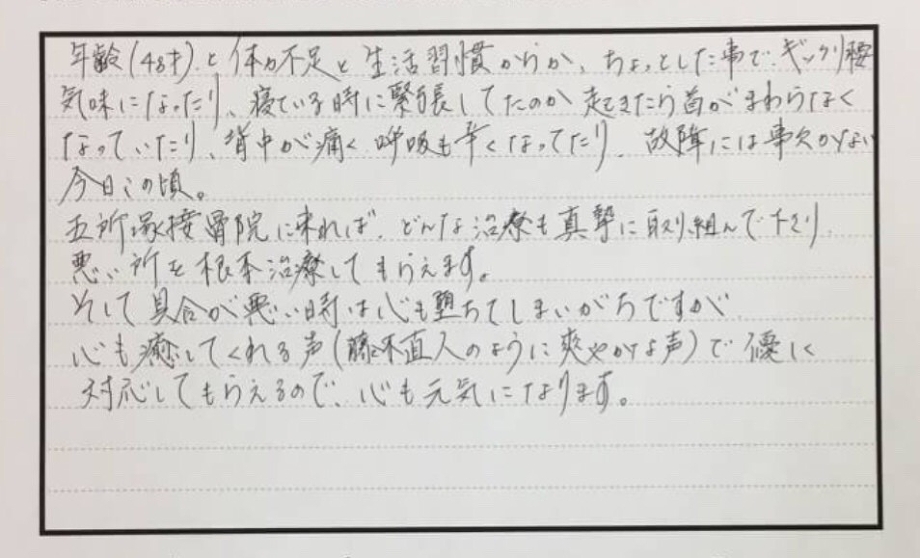 年齢(48才)と体力不足と生活習慣からか、ちょっとした事で、ギックリ腰
気味になったり、寝ている時に緊張してたのか起きたら首がまわらなく
なっていたり、背中が痛く呼吸も辛くなってたり、故障には事欠かない
今日この頃。
五所塚接骨院に来れば、どんな治療も真摯に取り組んで下さり、
悪い所を根本治療してもらえます。
そして具合が悪い時は心も堕ちてしまいがちですが
心も癒してくれる声(藤木直人のように爽やかな声)で優しく
対応してもらえるので、心も元気になります。